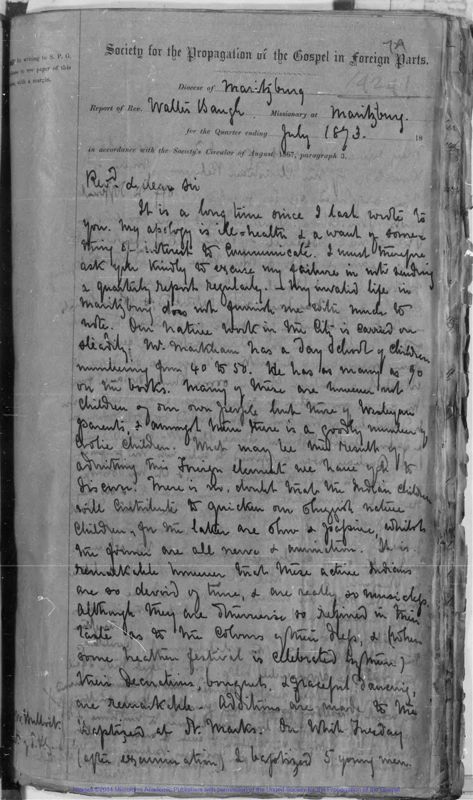 7A
in writing to S. P. G.
use paper of this
with a margin.
Society for the Propagation of the Gospel in Foreign Parts.
Diocese of Maritzburg
Report of Rev. Walter Baugh Missionary at Maritzburg.
for the Quarter ending July 1873. 18
in accordance with the Society's Circular of August, 1867, paragraph 3.
Revd & dear Sir
It is a long time since I last wrote to
you. My apology is ill-health & a want of some-
thing of interest to communicate. I must therefore
ask you kindly to excuse my failures in not sending
a quarterly report regularly. – My invalid life in
Maritzburg does not furnish me with much to
note. Our native work in the City is carried on
steadily. Mr. Markham has a day school of children
numbering from 40 to 50. He has as many as 90
on the books. Many of these are however not
children of our own people but those of Wesleyan
parents, & amongst them there is a goodly number of
Coolie children. What may be the result of
admitting this foreign element we have yet to
discover. There is no doubt that the Indian children
will contribute to quicken our sluggish native
children, for the latter are slow & whilst
the former are all nerve & animation. It is
remarkable however that these active Indians
are so devoid of time, & are really so musicless,
although they are otherwise so refined in their
taste as to the colours of their dress, & (when
some heathen festival is celebrated by them)
their decorations, bouquets, & graceful dancing,
are remarkable – Additions are made to the
Baptized at St. Marks. On Whit Tuesday
(after examination) I baptized 5 young men.
©2004 Microform Academic Publishers with permission of the United Society for the Propagation of the Gospel